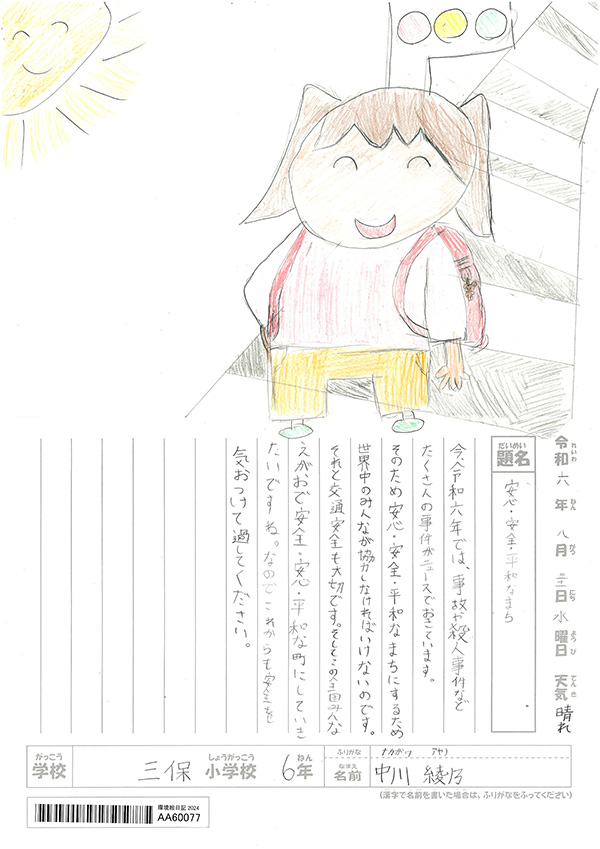 令和 六 年 八 月 三十一 日 水 曜日 天気 晴れ
れいわ ねん がつ にち ようび てんき
だいめい
題名
安心・安全・平和なまち
今令和六年では、事故や殺人事件など
たくさんの事件がニュースでおきています。
そのため安心・安全・平和なまちにするため
世界中のみんなが協力しなければいけないのです。
それと交通安全も大切です。そしてこの全国みんな
えがおで安全・安心・平和な町にしていき
たいですね。なのでこれからも安全を
気おつけて過してください。
がっこう しょうがっこう ねん ふりがな ナカガワ アヤノ
学校 三保 小学校 6年 なまえ 名前 中川 綾乃
(漢字で名前を書いた場合は、ふりがなをふってください)
環境絵日記 2024
AA60077